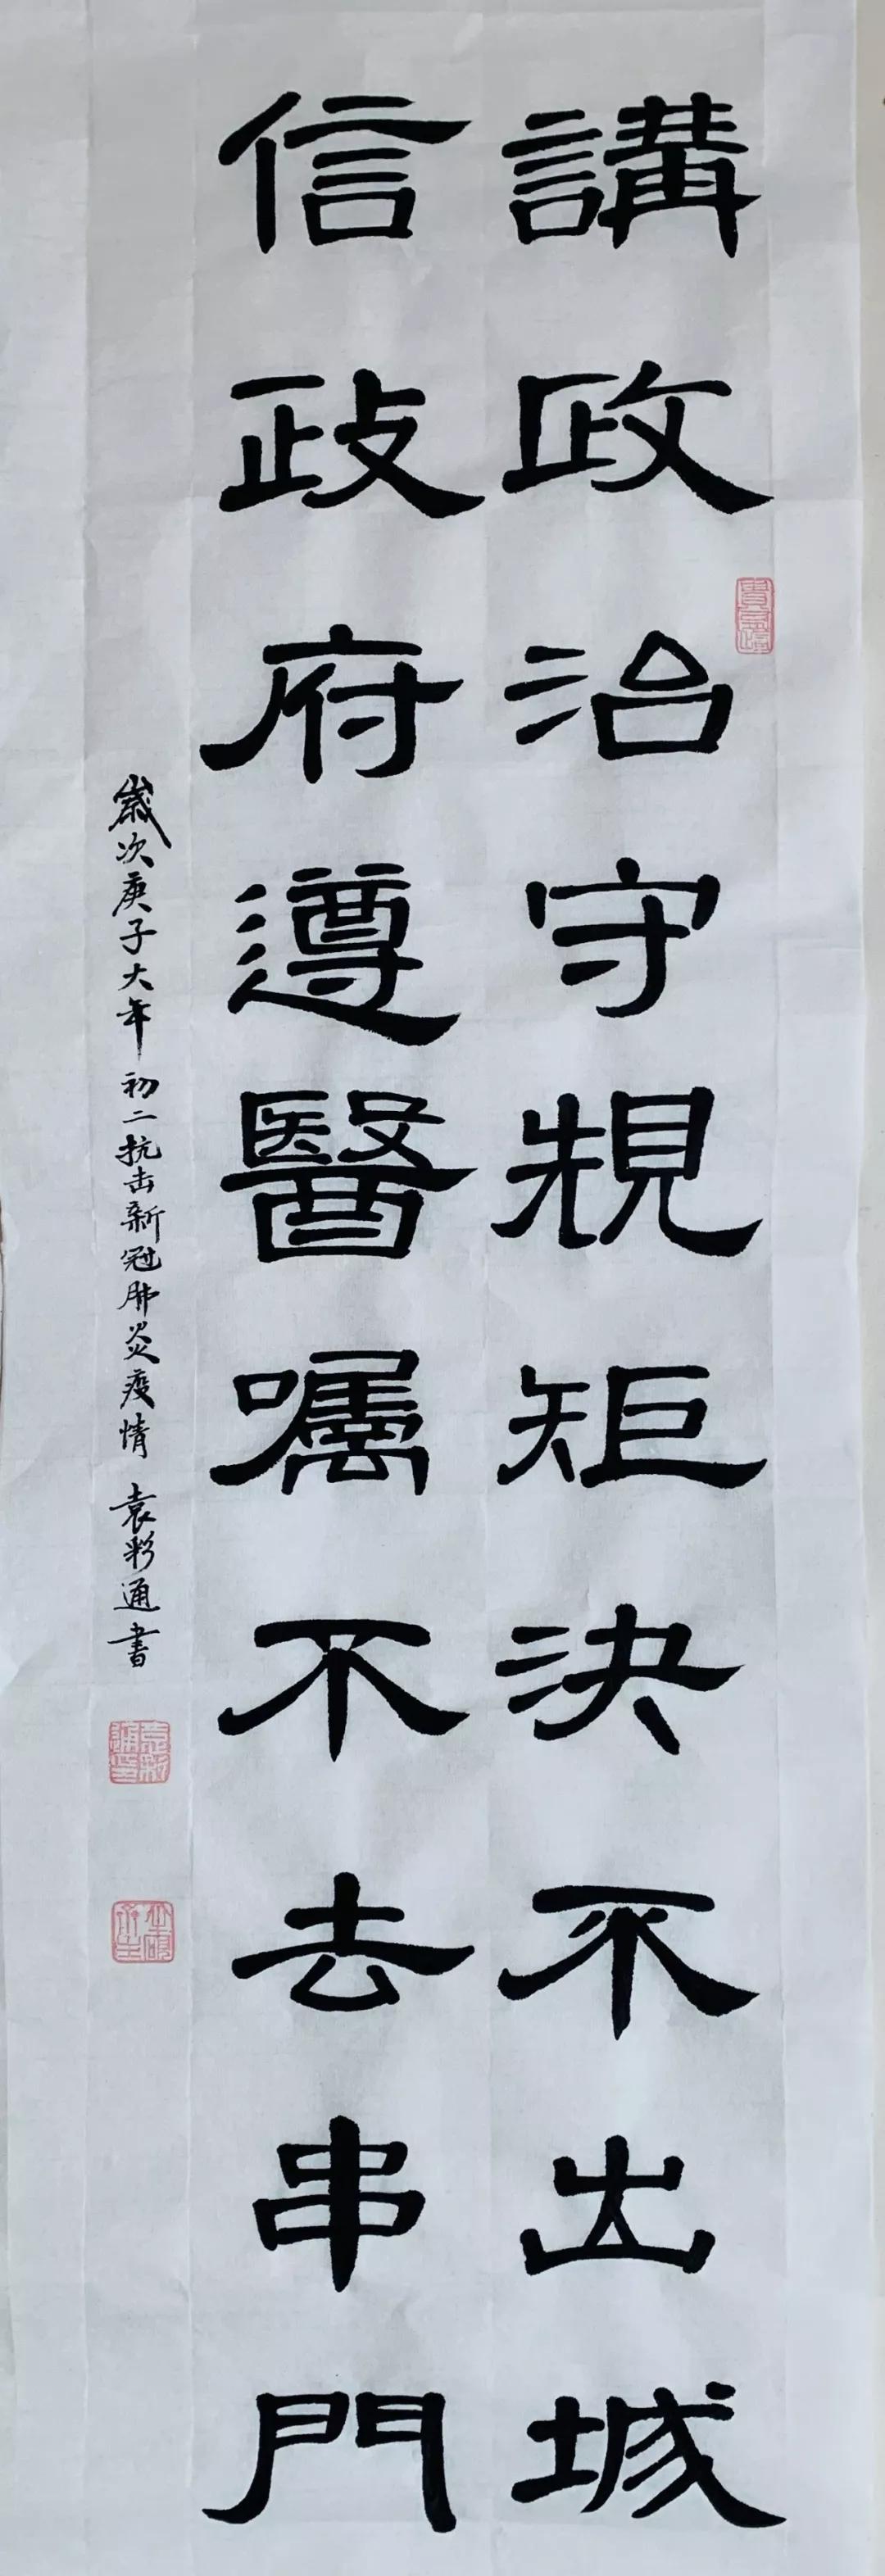 講政治守規矩決不出城
信政府遵醫囑不去串門
歲次庚子大年初二抗击新冠肺炎疫情 袁彩通書